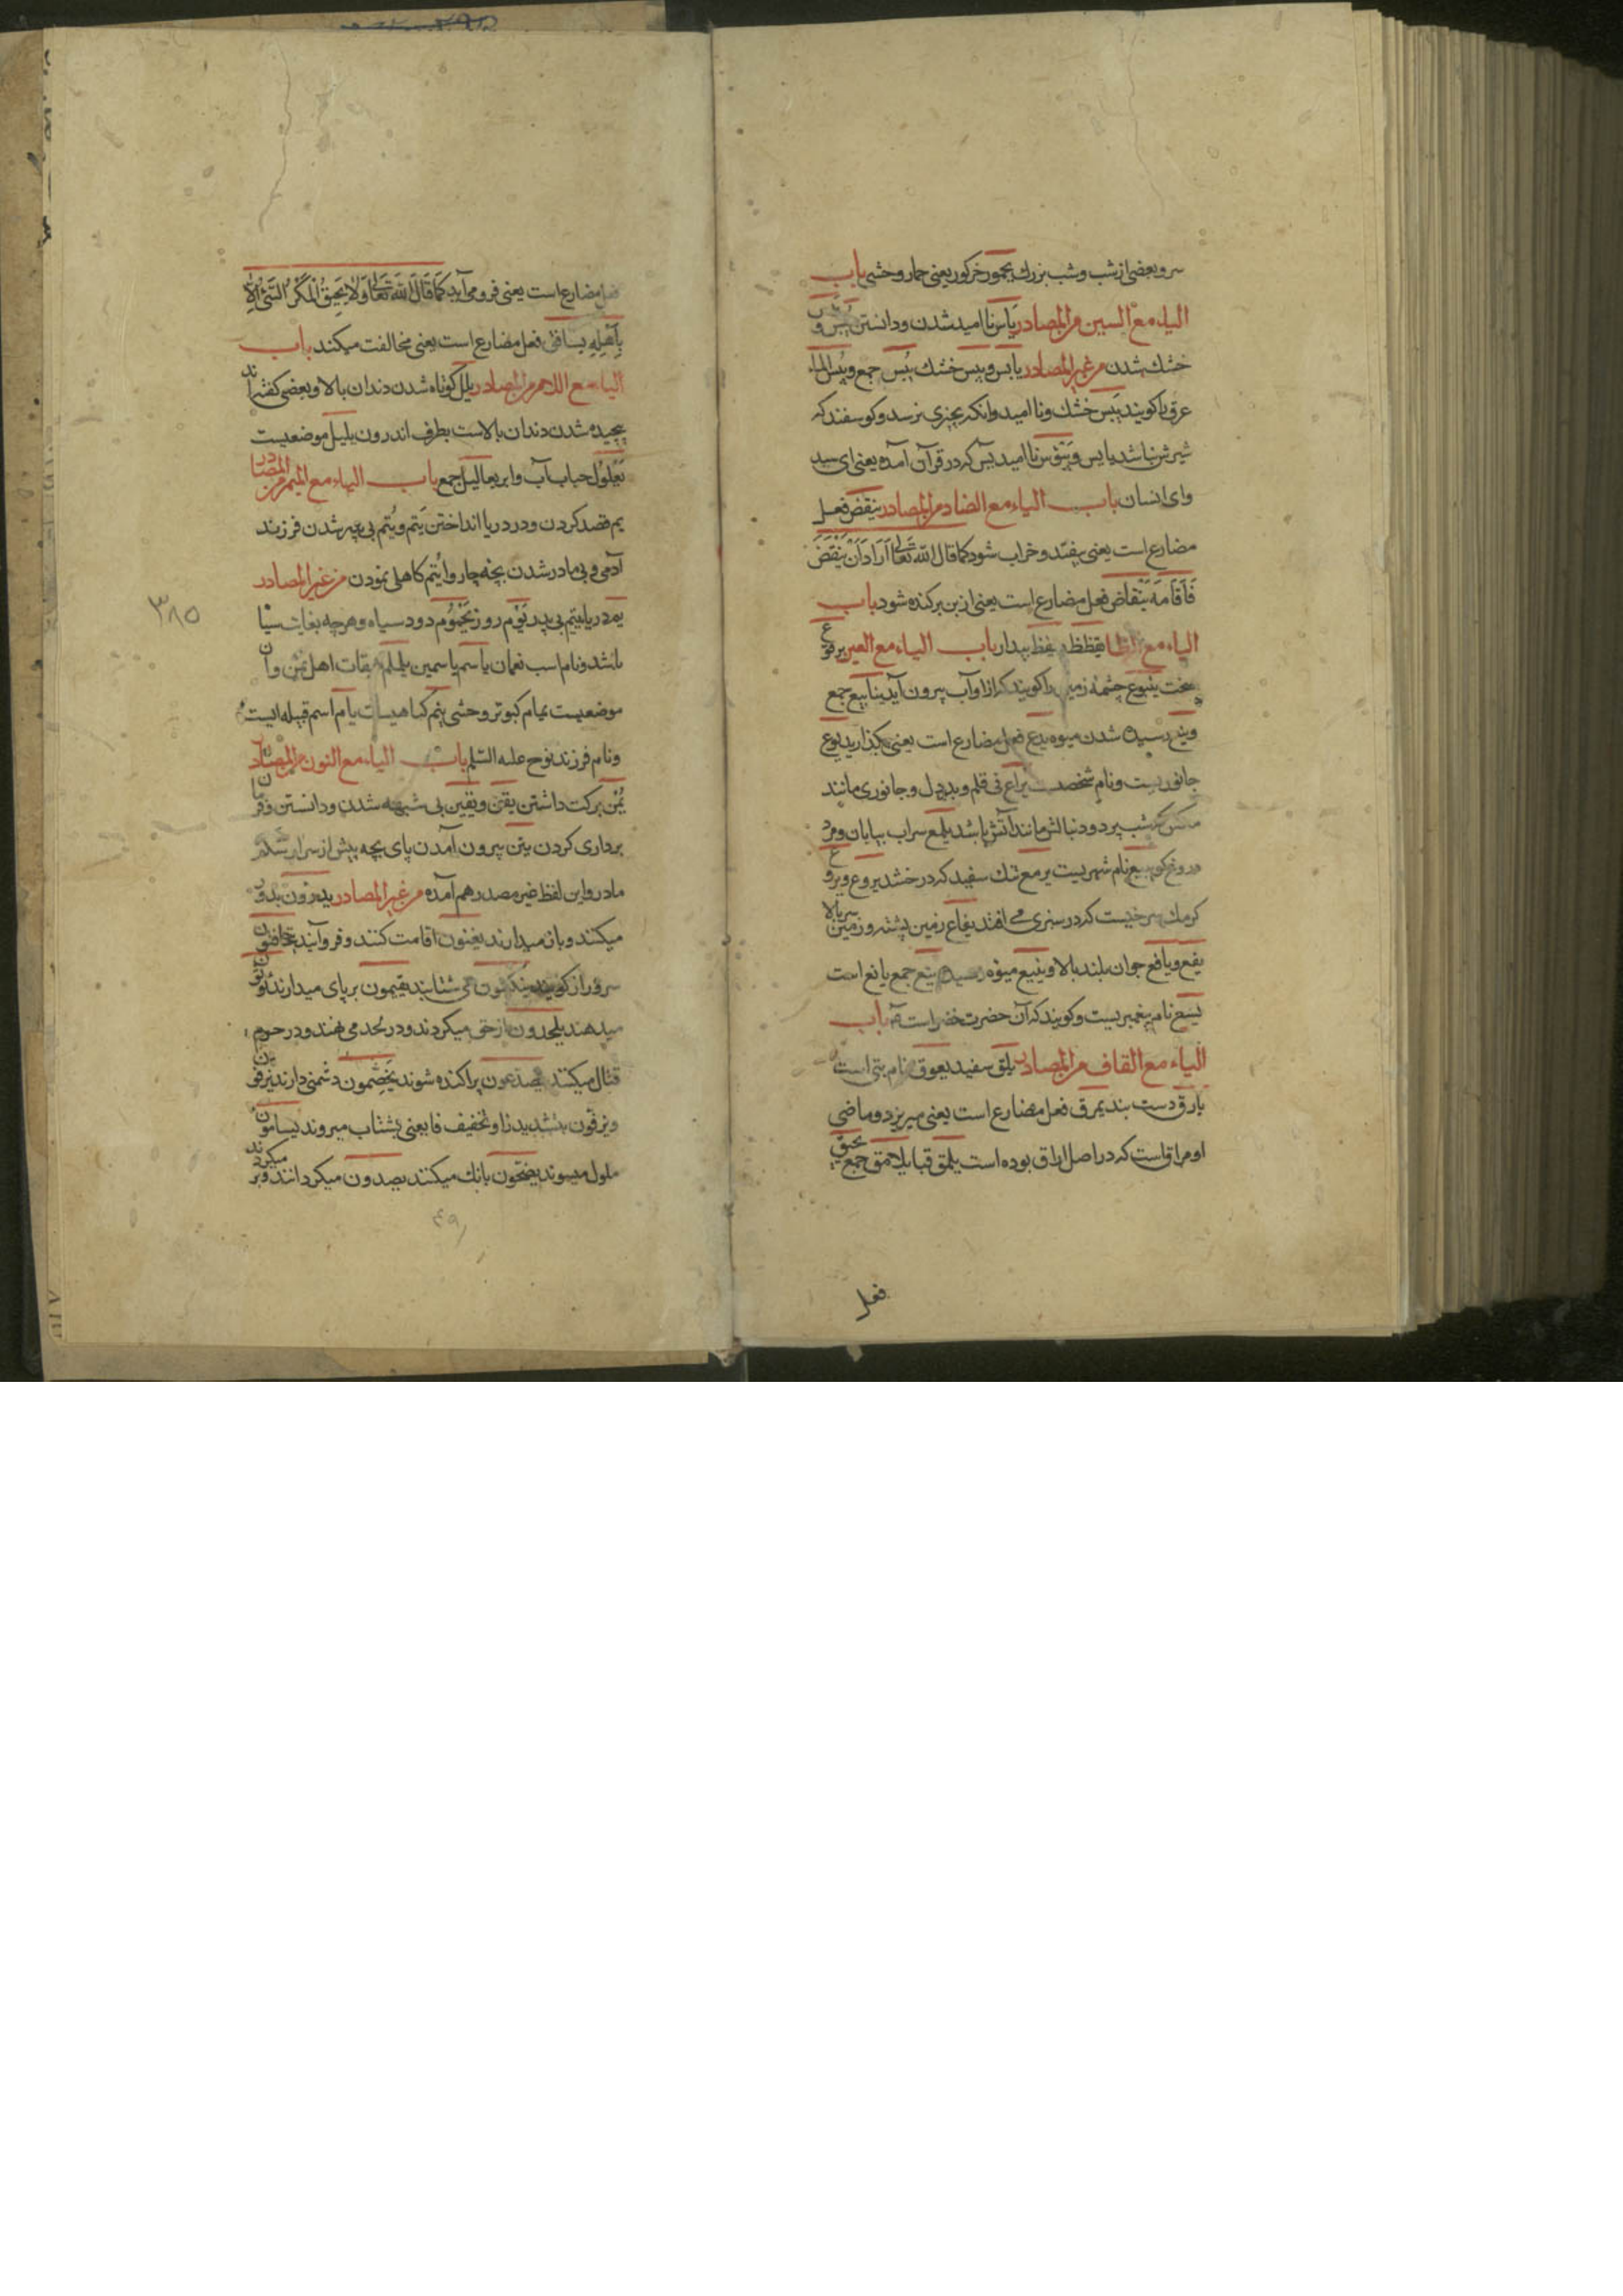 سر و بعضی از شب و شب بزرك یحمور خر کور یعنی حمار وحشی باب
الیاء مع السین من المصادر یأس نا امید شدن و دانستن یبس و
خشك شدن من غیر المصادر یابس و یبس خشك یبس جمع و یبس الماء
عرق را کویند یبس خشك و نا امید و انکه بچیزی نرسد و کوسفند که
شیرش نباشد یایس و یؤس نا امید یس که در قرآن آمده یعنی ای سید
و ای انسان باب الیاء مع الضاد من المصادر ینقض فعل
مضارع است یعنی بیفتد و خراب شود کما قال الله تعالی اَرَادَ اَنْ یَنْقَضَّ
فَاَقَامَهُ ینقاض فعل مضارع است یعنی از بن برکنده شود باب
الیاء مع الظا یقظ بیدار باب الیاء مع العین
سخت ینبوع چشمه زمین را کویند که از او آب بیرون آید ینابیع جمع
وینع رسیده شدن میوه یدع فعل مضارع است یعنی بکذارد یربوع
جانوریست و نام شخصیست یراع نی قلم و بددل و جانوری مانند
مکس که شب پرد و دنبالش مانند آتش باشد یلمع سراب بیابان و مرد
دروغ کو ینبع نام شهریست یرمع سنك سفید که در خشد
کرمك سرخیست که در سبزی می افتد یفاع زمین پشته و زمین سر بالا
یفع و یافع جوان بلند بالا و ینیع میوه رسیده ینع جمع یانع است
یسع نام پیغمبریست و کویند که آن حضرت خضر است باب
الیاء مع القاف من المصادر یلق سفید یعوق نام بتی است
یارق دست بند یمرق فعل مضارع است یعنی میریزد و ماضی
او مراقست که در اصل اراق بوده است یلمق قبا یلامق جمع یحیق
فعل
فعل مضارع است یعنی فرو می آید کما قال الله تعالی وَلَا یَحِیقُ الْمَکْرُ السَّیِّئُ اِلَّا
بِاَهْلِهِ یساقی فعل مضارع است یعنی مخالفت میکند باب
الیاء مع اللام من المصادر یلل کوتاه شدن دندان بالا و بعضی کفته اند
پیچیده شدن دندان بالاست بطرف اندرون یلیل موضعیست
یعلول حباب آب و ابر یعالیل جمع باب الیاء مع المیم من المصادر
یم قصد کردن و در دریا انداختن یتم و یُتم بی پدر شدن فرزند
آدمی و بی مادر شدن بچه چاروا یتم کاهلی نمودن من غیر المصادر
یم دریا یتیم بی پدر یوم روز یحموم دود سیاه و هر چه بغایت سیاه
باشد و نام اسب نعمان یاسم یاسمین یلملم میقات اهل یمن و آن
موضعیست یمام کبوتر وحشی ینم کیاهیست یام اسم قبیله ایست
و نام فرزند نوح علیه السّلم باب الیاء مع النون من المصادر
یُمن برکت داشتن یقن و یقین بی شبهه شدن و دانستن و فرمان
برداری کردن یتن بیرون آمدن پای بچه پیش از سر از شکم
مادر و این لفظ غیر مصدر هم آمده من غیر المصادر یدرؤن بدور
میکنند و باز میدارند یغنون اقامت کنند و فرو آیند یتخافتون
سر و راز کویند ینکثون می شتابند یقیمون بر پای میدارند یؤتون
میدهند یلحدون از حق میکردند و در لحد می نهند و در حرم
قتال میکنند یصدعون پراکنده شوند یخصمون دشمنی دارند یزفون
ویزفون بتشدید زا و تخفیف فا یعنی بشتاب میروند یسامون
ملول میشوند یضجون بانك میکنند یصدون میکردانند و بر میکردند
٣٨٥
٤٩